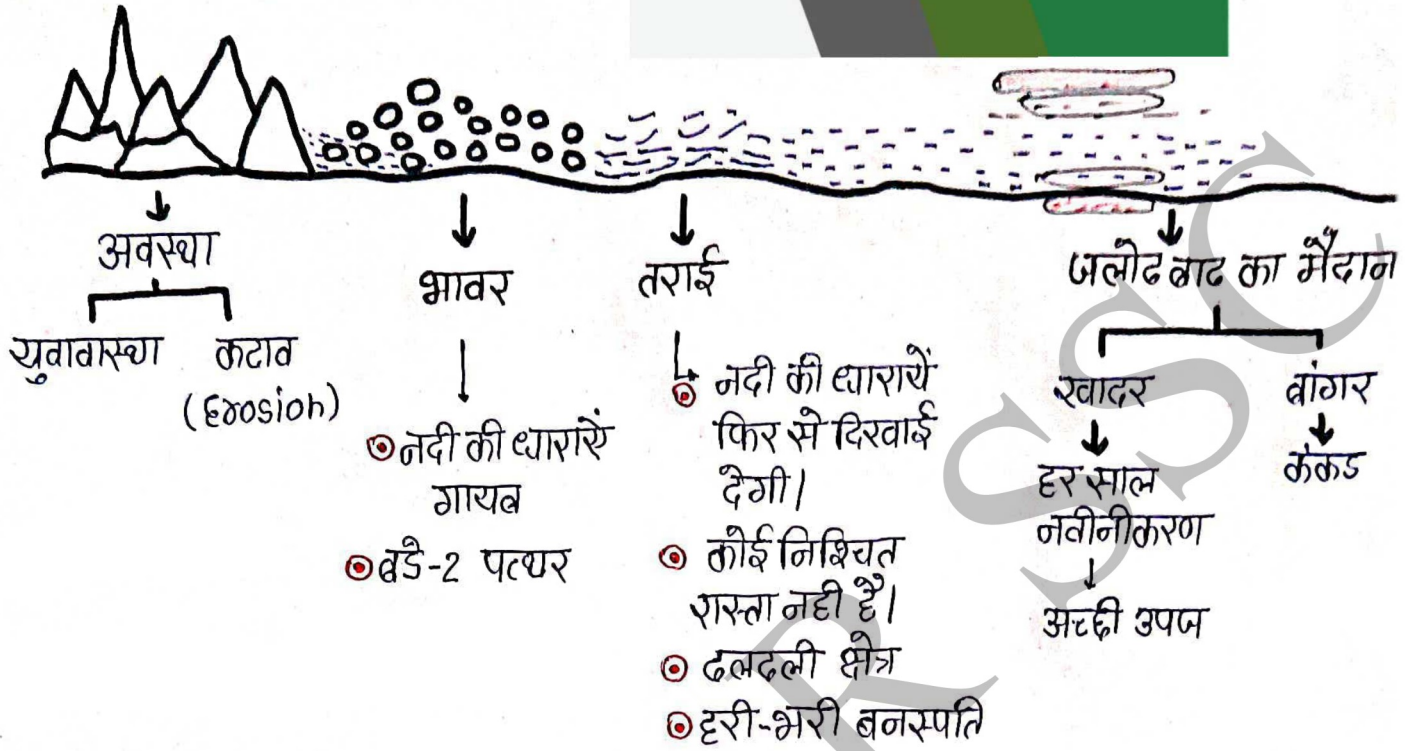 अवस्था
युवावास्था
कटाव
(Erosion)
भावर
नदी की धारायें
गायब
बडे-2 पत्थर
तराई
नदी की धारायें
फिर से दिखाई
देगी।
कोई निश्चित
रास्ता नही है।
दलदली क्षेत्र
हरी-भरी बनस्पति
जलोढ बाढ का मैदान
खादर
हर साल
नवीनीकरण
अच्छी उपज
बांगर
कंकड
R SSC